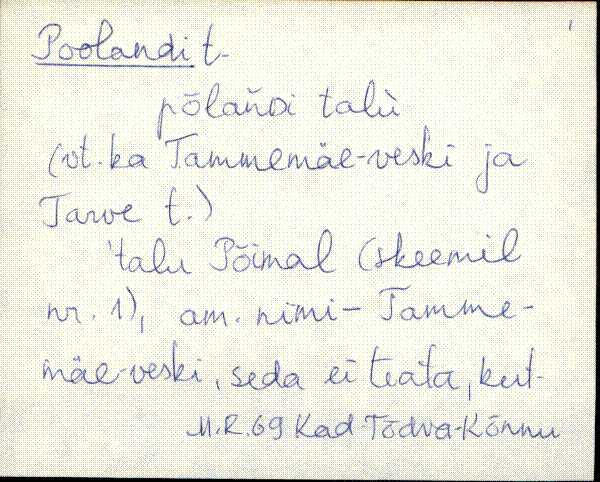 Poolandi t.
pōlaňɒi talù
(vt. ka Tammemäe-veski ja
Tarve t.)
'talu Põimal (skeemil
nr. 1), am. nimi - Tamme-
mäe-veski, seda ei teata, kut-
M.R. 69 Kad-Tõdva-Kõnnu